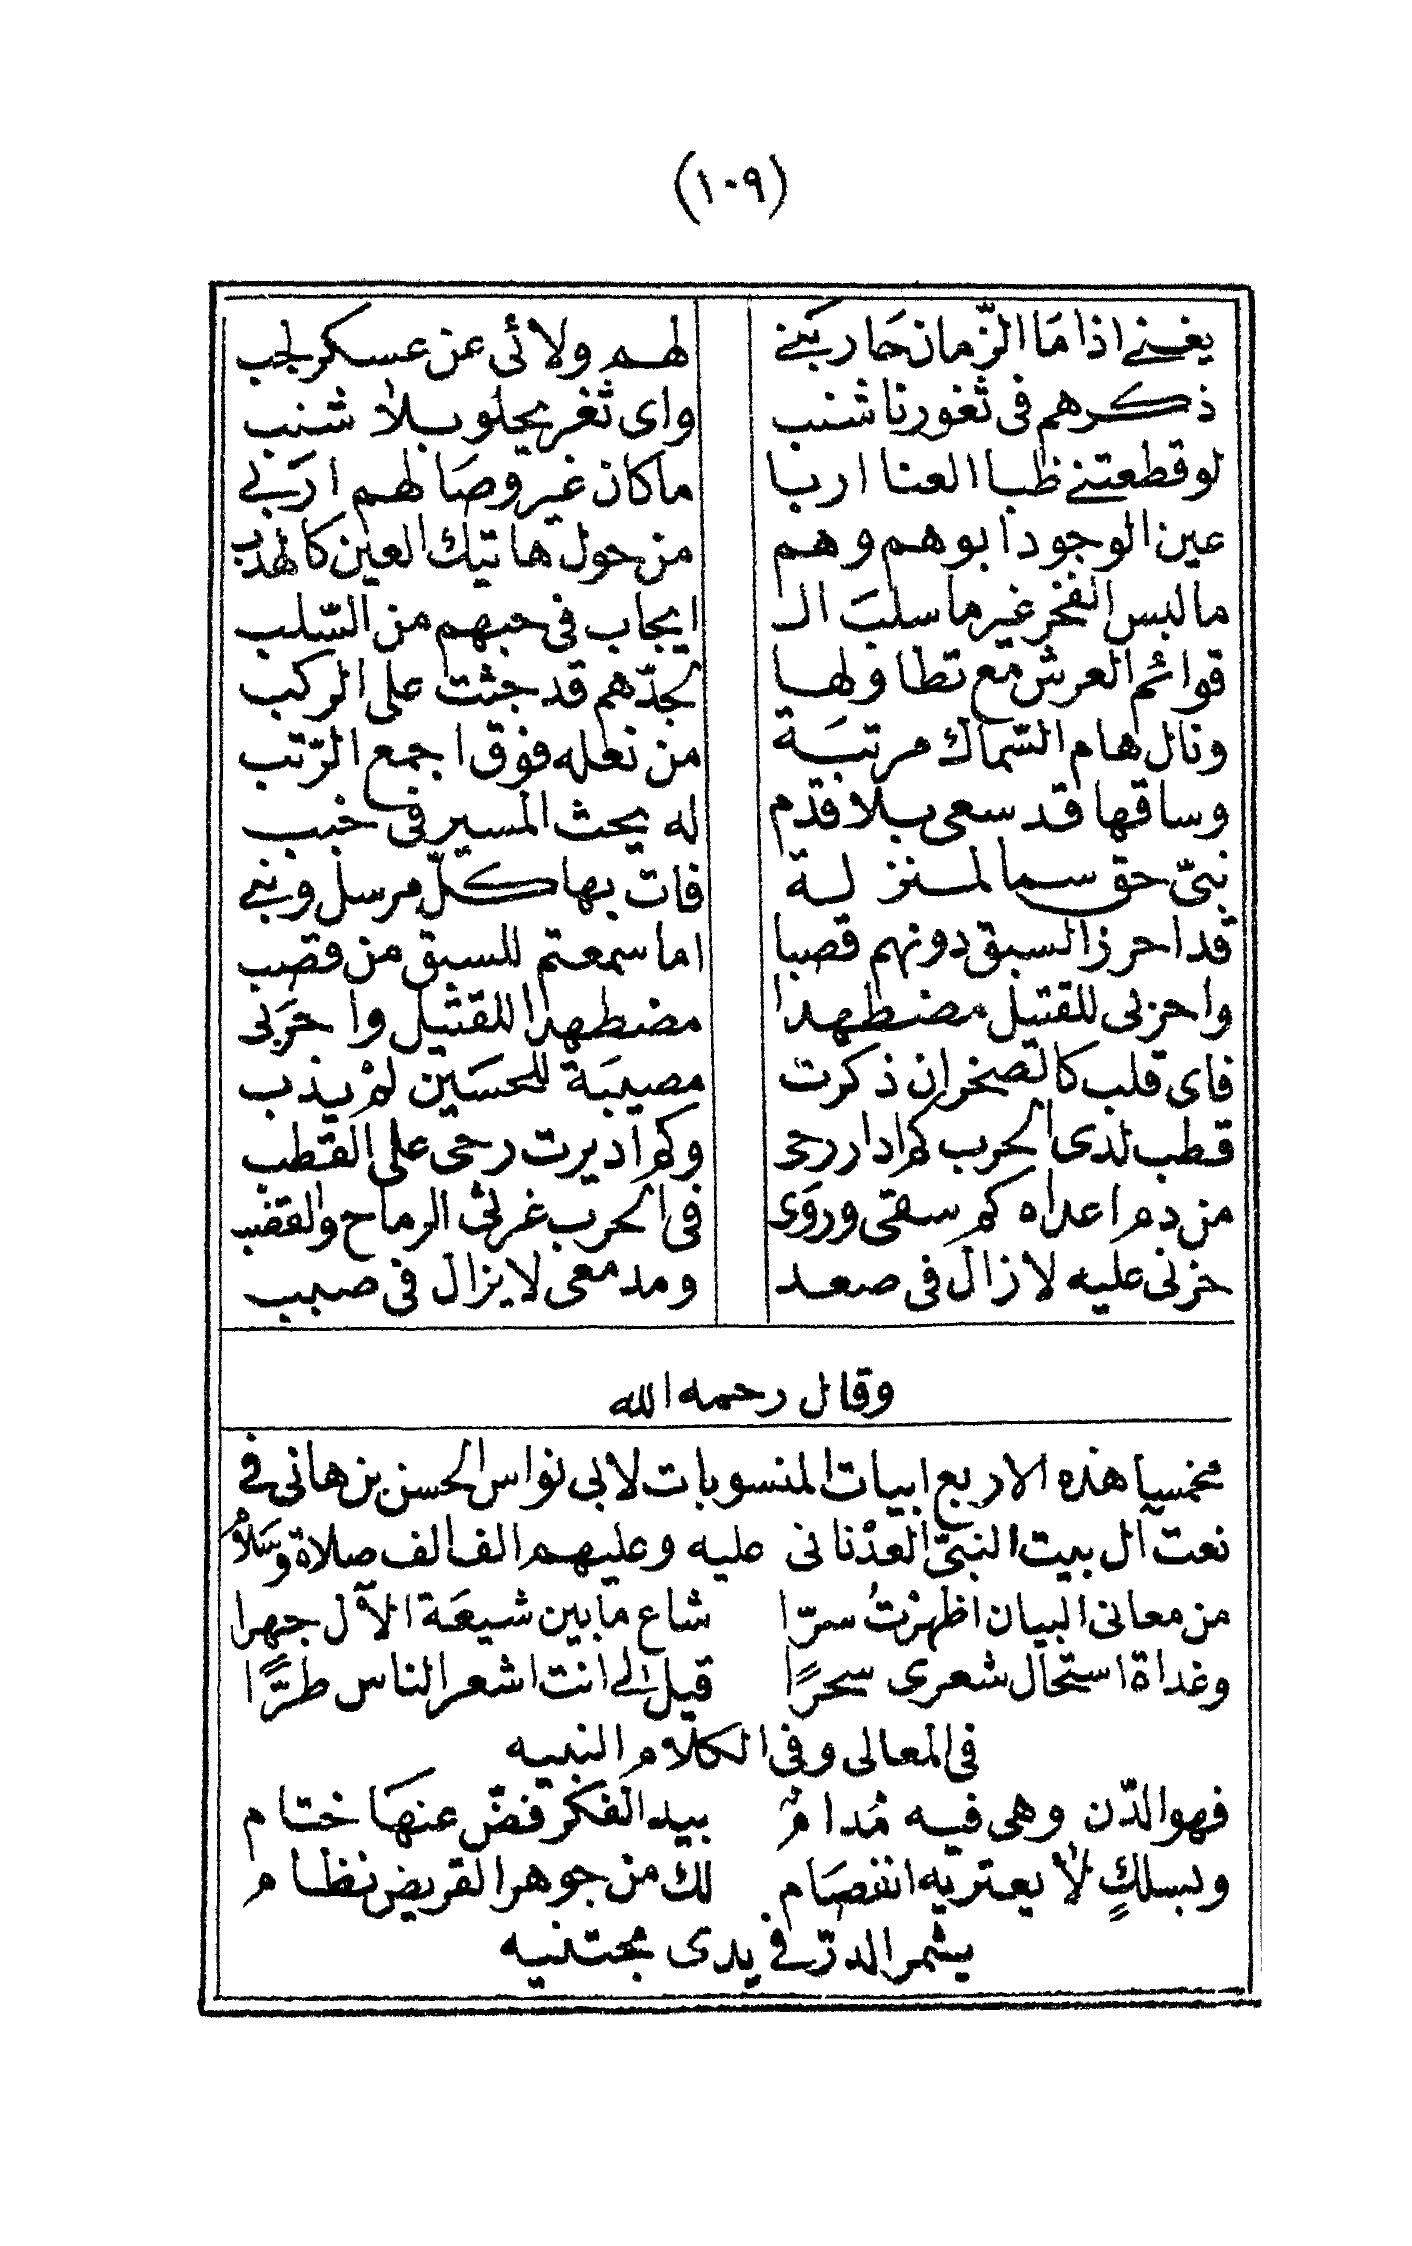 (١٠٩)
يغنے اذا مَا الزّمان حَاربَنے لهم ولائى عن عسكر لجب
ذكرهم فى ثغورنا شنب واى ثغر يحلو بلا شنب
لو قطعتنے ظبا العنا اربا ما كان غير وصَالهم اربَے
عين الوجود ابوهم وهم من حول هاتيك العين كالهدب
ما لبس الفخر غير ما سلبَ الـ ايجاب فى حبهم من السّلب
قوائم العرش مع تطاولها لجدّهم قد جثت على الركب
ونال هام السّماك مرتبَة من نعله فوق اجمع الرّتب
وساقها قد سعى بلا قدَم له يحث المسير فى خبب
نبىّ حق سما لمنزلة فات بها كلّ مرسل ونبے
قد احرز السبق دونهم قصبا اما سمعتم للسبق من قصب
واحزنى للقتيل مضطهدا مضطهدا للقتيل واحرَبى
فاى قلب كالصخر ان ذكرت مصيبَة للحسَين لمْ يذب
قطب لدى الحرب كم ادار رحى وكم اديرت رحى على القطب
من دم اعداه كم سقى وروَى فى الحرب غرثى الرماح والقضب
حزنى عليه لا زال فى صعد ومدمعى لا يزال فى صبب
وقال رحمه الله
مخمسا هذه الاربع ابيات المنسوبات لابى نواس الحسن بن هانى فے
نعت آل بيت النبىّ العدْنانى عليه وعليهم الف الف صلاة وسَلام
من معانى البيان اظهرْتُ سرّا شاع ما بين شيعَة الآل جهرا
وغداة استحال شعرى سحرًا قيل لے انت اشعر الناس طرًّا
فى المعالى وفى الكلام النبيه
فهو الدّن وهى فيه مُدامٌ بيد الفكر فضّ عنهَا ختام
وبسلكٍ لا يعتريه انفصَام لك من جوهر القريض نظام
يثمر الدرّ فے يدى مجتنيه